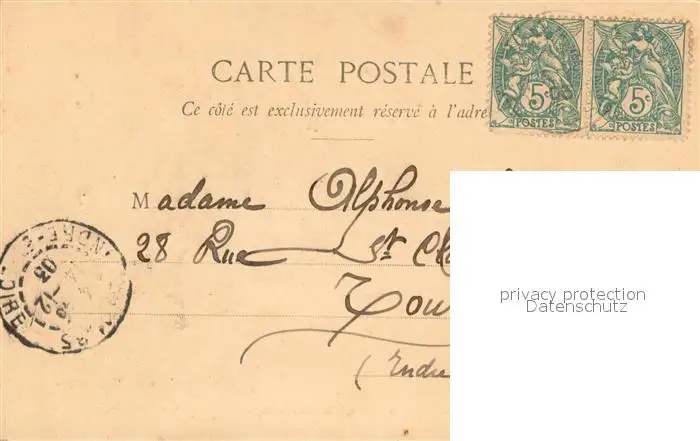 CARTE POSTALE
Ce côté est exclusivement réservé à l'adre
5c 5c
POSTES POSTES
Madame Alphonse
28 Rue St Cl
Tou
(Indre
privacy protection
Datenschutz
INDRE-E 03 12